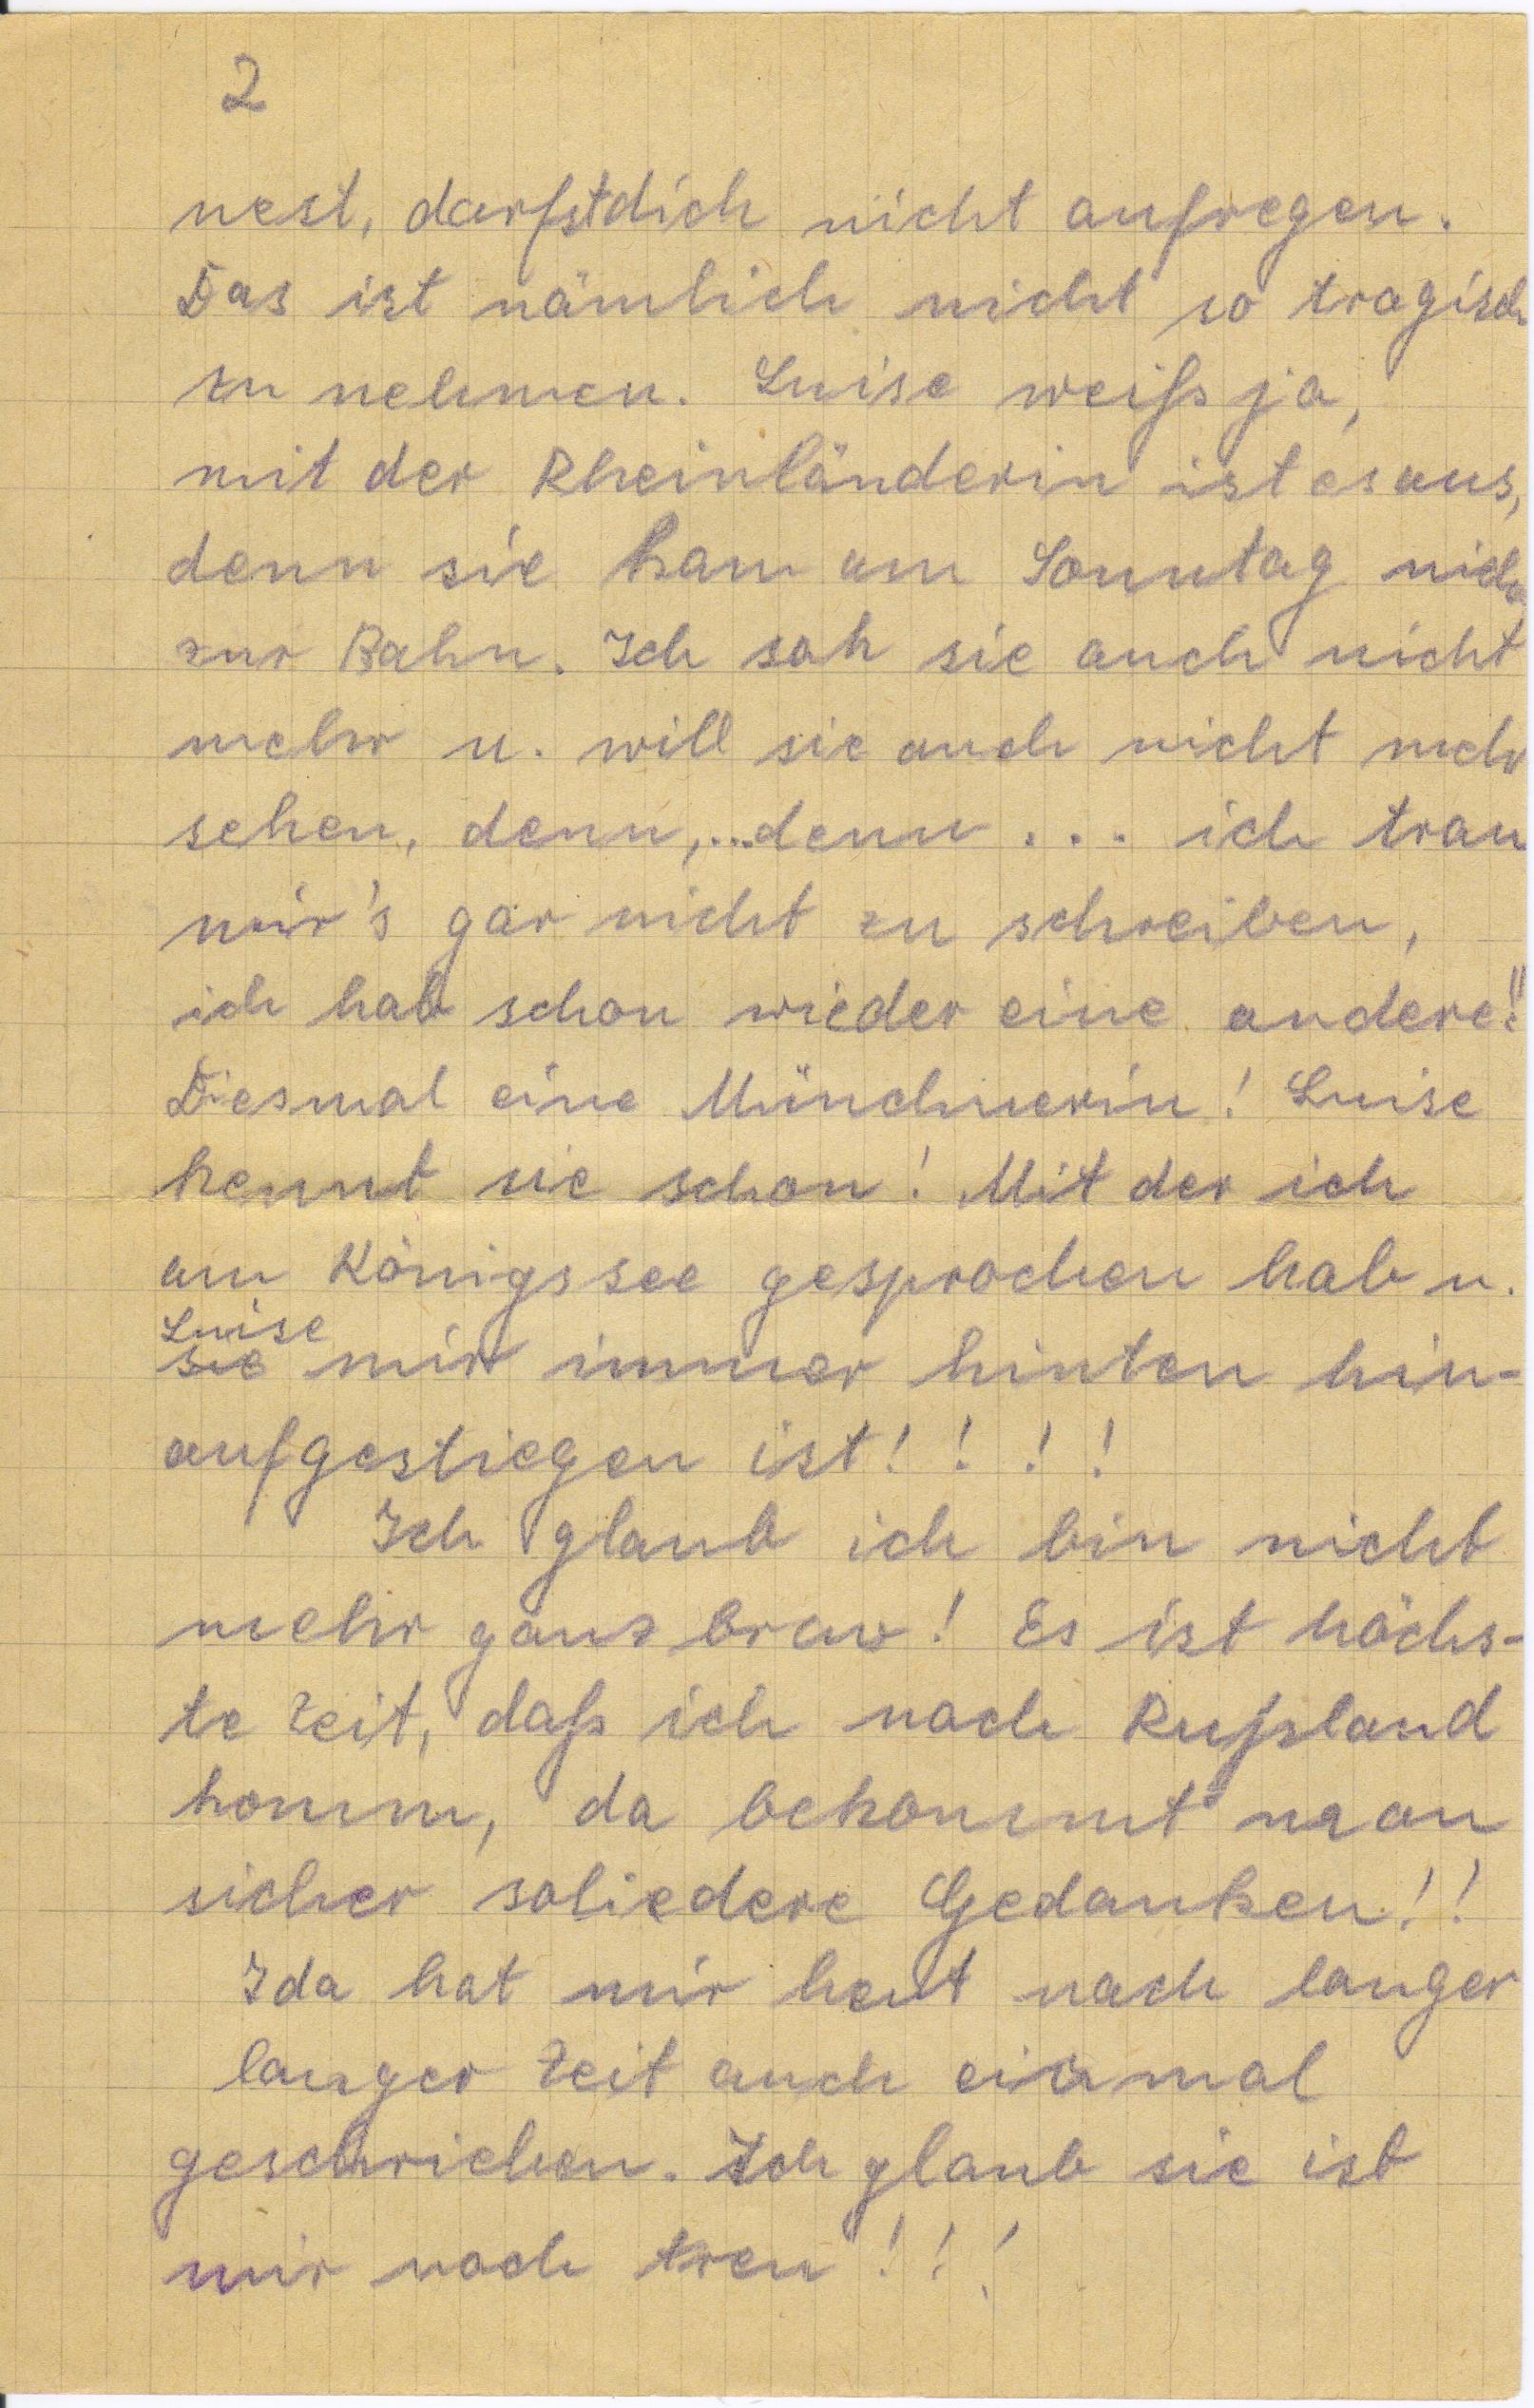 2
nest, darfst dich nicht aufregen.
Das ist nämlich nicht so tragisch
zu nehmen. Luise weiß ja,
mit der Rheinländerin ist es aus,
denn sie kam am Sonntag nicht
zur Bahn. Ich sah sie auch nicht
mehr u. will sie auch nicht mehr
sehen, denn,...denn . . . ich trau
mir's gar nicht zu schreiben,
ich hab schon wieder eine andere!!
Diesmal eine Münchnerin! Luise
kennt sie schon! Mit der ich
am Königssee gesprochen hab u.
Luise
sie mir immer hinten hin-
aufgestiegen ist! ! ! !
Ich glaub ich bin nicht
mehr ganz brav! Es ist höchs-
te Zeit, daß ich nach Rußland
komm, da bekommt man
sicher soliedere Gedanken!!
Ida hat mir heut nach langer
langer Zeit auch einmal
geschrieben. Ich glaub sie ist
mir noch treu!!!